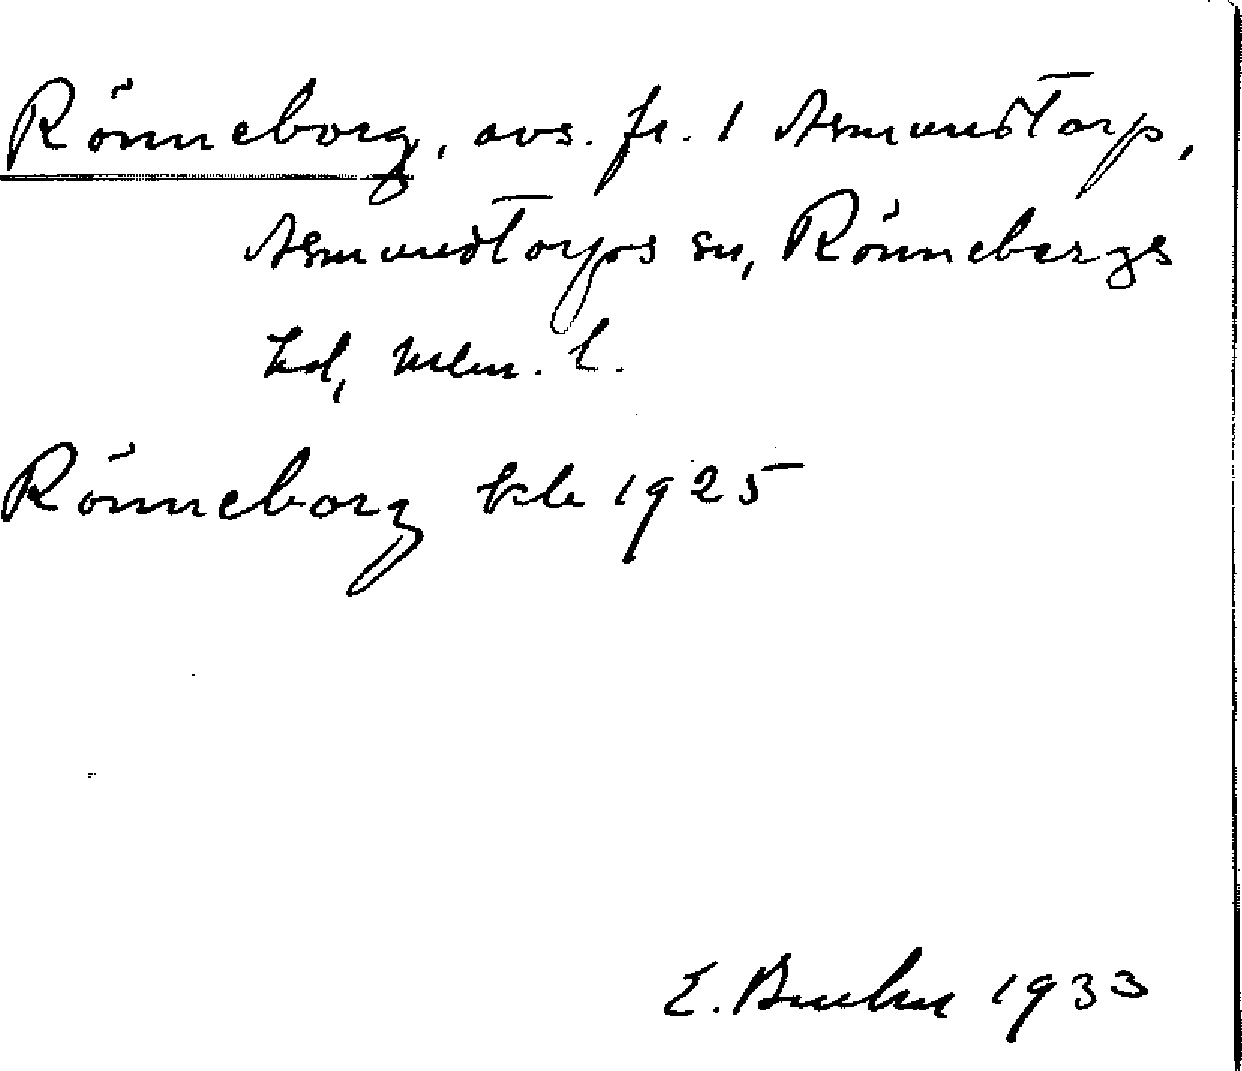 Rönneborg, avs. fr. 1 Asmundtorp,
Asmundtorps sn, Rönnebergs
hd, Mlm. l.
Rönneborg kb 1925
E. Bruhn 1933